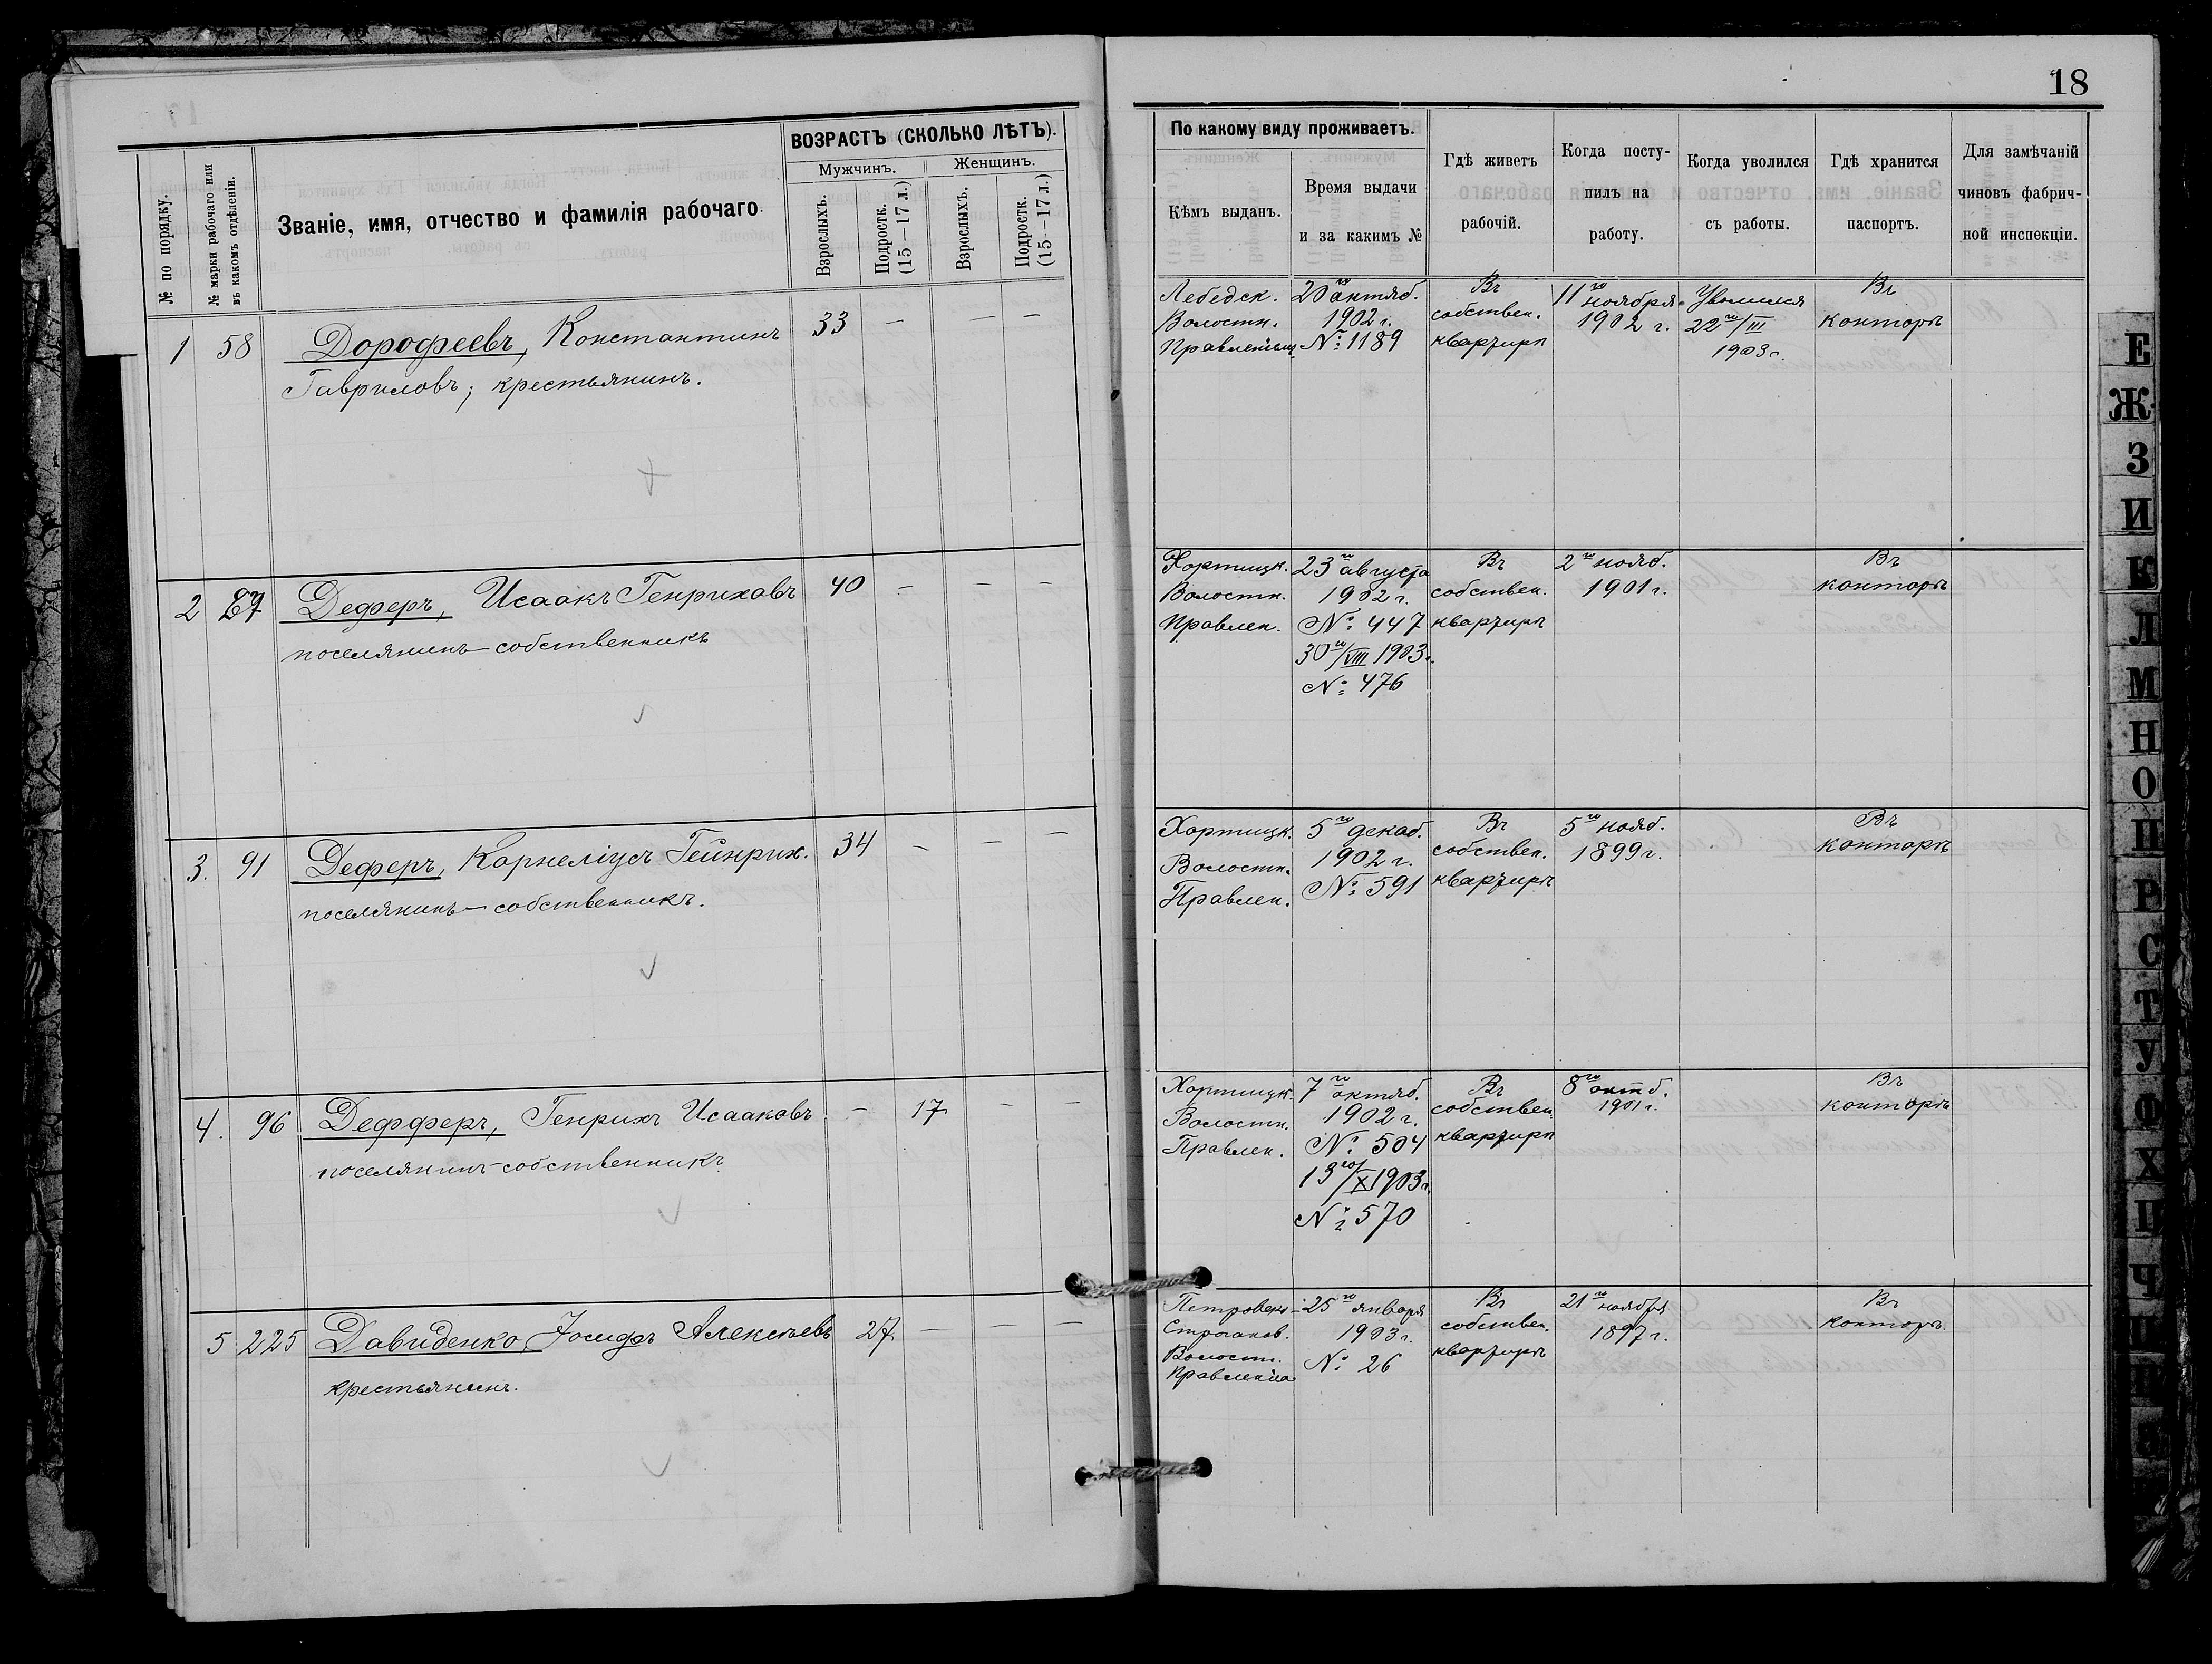 18
№ по порядку.
№ марки рабочаго или
въ какомъ отдѣленіи.
Званіе, имя, отчество и фамилія рабочаго.
ВОЗРАСТЪ (СКОЛЬКО ЛѢТЪ).
Мужчинъ.
Женщинъ.
Взрослыхъ.
Подростк.
(15—17 л.)
Взрослыхъ.
Подростк.
(15—17 л.)
По какому виду проживаетъ.
Кѣмъ выданъ.
Время выдачи
и за какимъ №
Гдѣ живетъ
рабочій.
Когда посту-
пилъ на
работу.
Когда уволился
съ работы.
Гдѣ хранится
паспортъ.
Для замѣчаній
чиновъ фабрич-
ной инспекціи.
1 58 Дорофеевъ, Константинъ 33 — — —
Гавриловъ; крестьянинъ.
Лебедск.
Волостн.
20го октяб.
1902 г.
№ 1189
Въ
собствен.
квартирѣ
11го ноября
1902 г.
Уволился
22го/III
1903 г.
Въ
конторѣ
2 Деферъ, Исаакъ Генриховъ 40 — — —
поселянинъ-собственникъ
Хортицк.
Волостн.
Правлен.
23го августа
1902 г.
№ 447
30го/VIII 1903 г.
№ 476
Въ
собствен.
квартирѣ
2го нояб.
1901 г.
Въ
конторѣ
3. 91 Деферъ, Корнеліусъ Гейнрих. 34 — — —
поселянинъ-собственникъ.
Хортицк.
Волостн.
Правлен.
5го декаб.
1902 г.
№ 591
Въ
собствен.
квартирѣ
5го нояб.
1899 г.
Въ
конторѣ
4. 96 Дефферъ, Генрихъ Исааковъ — 17 — —
поселянинъ-собственникъ
Хортицк.
Волостн.
Правлен.
7го октяб.
1902 г.
№ 504
13го/X 1903 г.
№ 570
Въ
собствен.
квартирѣ
8го октб.
1901 г.
Въ
конторѣ
5 225 Давиденко, Іосифъ Алексѣевъ 27 — — —
крестьянинъ.
Строганов.
Волостн.
Правленіа
25го января
1903 г.
№ 26
Въ
собствен.
квартирѣ
21го ноября
1897 г.
Въ
конторѣ
Е
Ж
З
И
К
Л
М
Н
О
П
Р
С
Т
У
Ф
Х
Ц
Ч